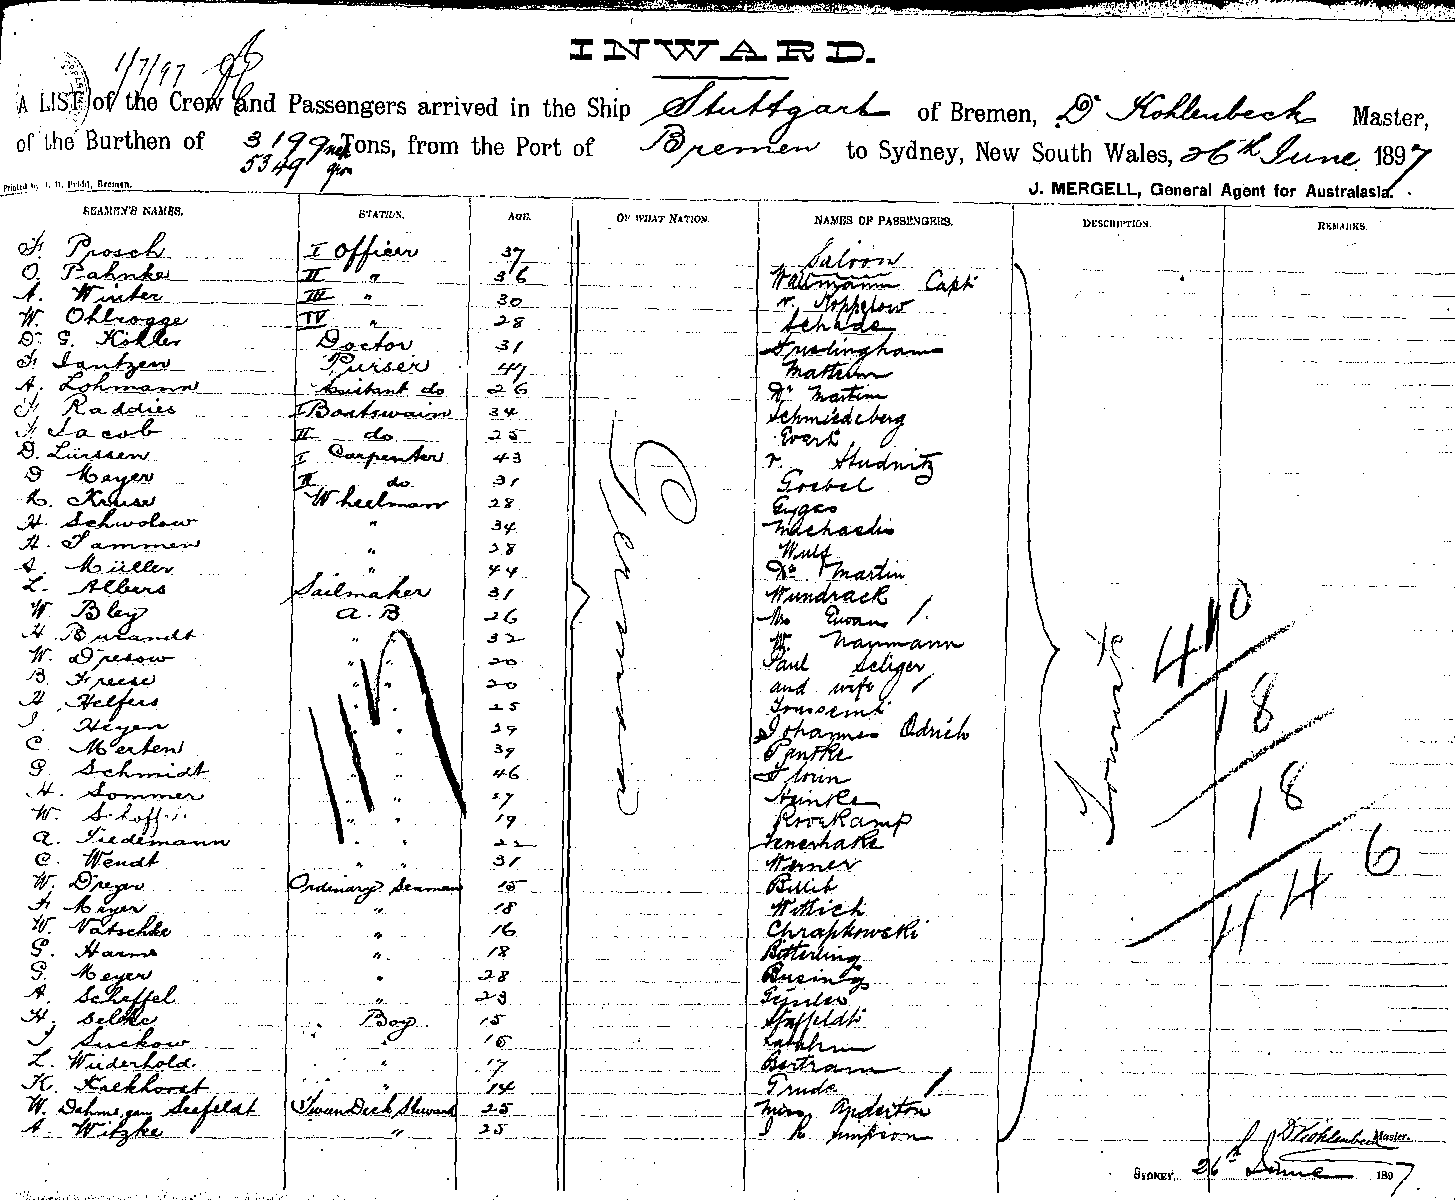 INWARD.
1/7/97
A LIST of the Crew and Passengers arrived in the Ship Stuttgart of Bremen, D. Kohlenbeck Master,
of the Burthen of 3199 net Tons, from the Port of Bremen to Sydney, New South Wales, 26th June 1897
5349 gross
J. MERGELL, General Agent for Australasia.
SEAMEN'S NAMES. STATION. AGE. OF WHAT NATION. NAMES OF PASSENGERS. DESCRIPTION. REMARKS.
F. Prosch I Officer 37 Saloon
O. Pahnke II " 36 Wallmann Capt
A. Winter III " 30 v. Koppelow
W. Ohlrogge IV " 28 Schade
Dr. G. Köhler Doctor 31
F. Jantzen Purser 47
A. Lohmann Assistant do 26 Dr Martin
F. Raddies I Boatswain 34 Schmiedeberg
F. Jacob II do 25 Evert
D. Lürssen I Carpenter 43 v. Studnitz
D Meyer II do 31 Goebel
R. Kruse Wheelman 28
H. Schwolow " 34 Michaelis
H. Tammen " 28 Wulf
A. Müller " 44 Dr Martin
L. Albers Sailmaker 31 Wundrack
W Bley A.B 26 Mrs Evans
H. Burandt " " 32 W. Naumann
W. Dresow " " 20 Paul Seliger
B. Freese " " 20 and wife
H. Helfers " " 25
J. Heyen " " 29 Johannes Odrich
C. Merten " " 39 Panske
G. Schmidt " " 46 Florin
H. Sommer " " 27 Heinke
W. " " 19
A. Tiedemann " " 22
C. Wendt " " 31 Werner
W. Dreyer Ordinary Seaman 15
F. Meyer " 18 Wittich
W. Vatschke " 16 Chrapkowski
G. Harms " 18 Bitterling
G. Meyer " 28 Busing
A. Scheffel " 23
H. Boy 15 Staffeldt
J. Suckow " 16
L. Wiederhold " 17 Bertram
K. Kalkhorst " 14 Trude
W. Seefeldt Steward 25 Miss Anderton
A. Witzke " 25 J R Simpson
German
Tourist
117
410
18
18
446
D Kohlenbeck Master.
SYDNEY, 26th June 1897.